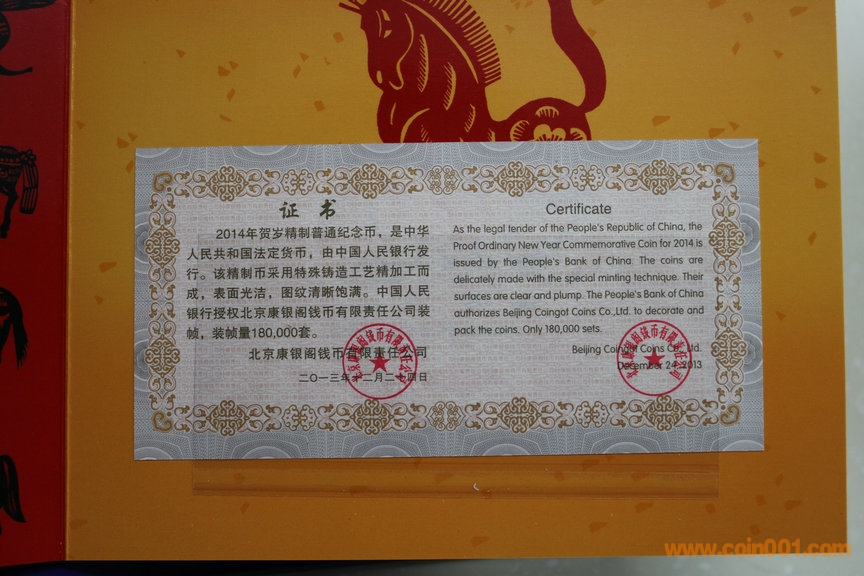 证 书
2014年贺岁精制普通纪念币，是中华
人民共和国法定货币，由中国人民银行发
行。该精制币采用特殊铸造工艺精加工而
成，表面光洁，图纹清晰饱满。中国人民
银行授权北京康银阁钱币有限责任公司装
帧，装帧量180,000套。
北京康银阁钱币有限责任公司
二〇一三年十二月二十四日
Certificate
As the legal tender of the People's Republic of China, the
Proof Ordinary New Year Commemorative Coin for 2014 is
issued by the People's Bank of China. The coins are
delicately made with the special minting technique. Their
surfaces are clear and plump. The People's Bank of China
authorizes Beijing Coingot Coins Co.,Ltd. to decorate and
pack the coins. Only 180,000 sets.
Beijing Coingot Coins Co., Ltd.
December 24, 2013
北京康银阁钱币有限责任公司
北京康银阁钱币有限责任公司
www.coin001.com